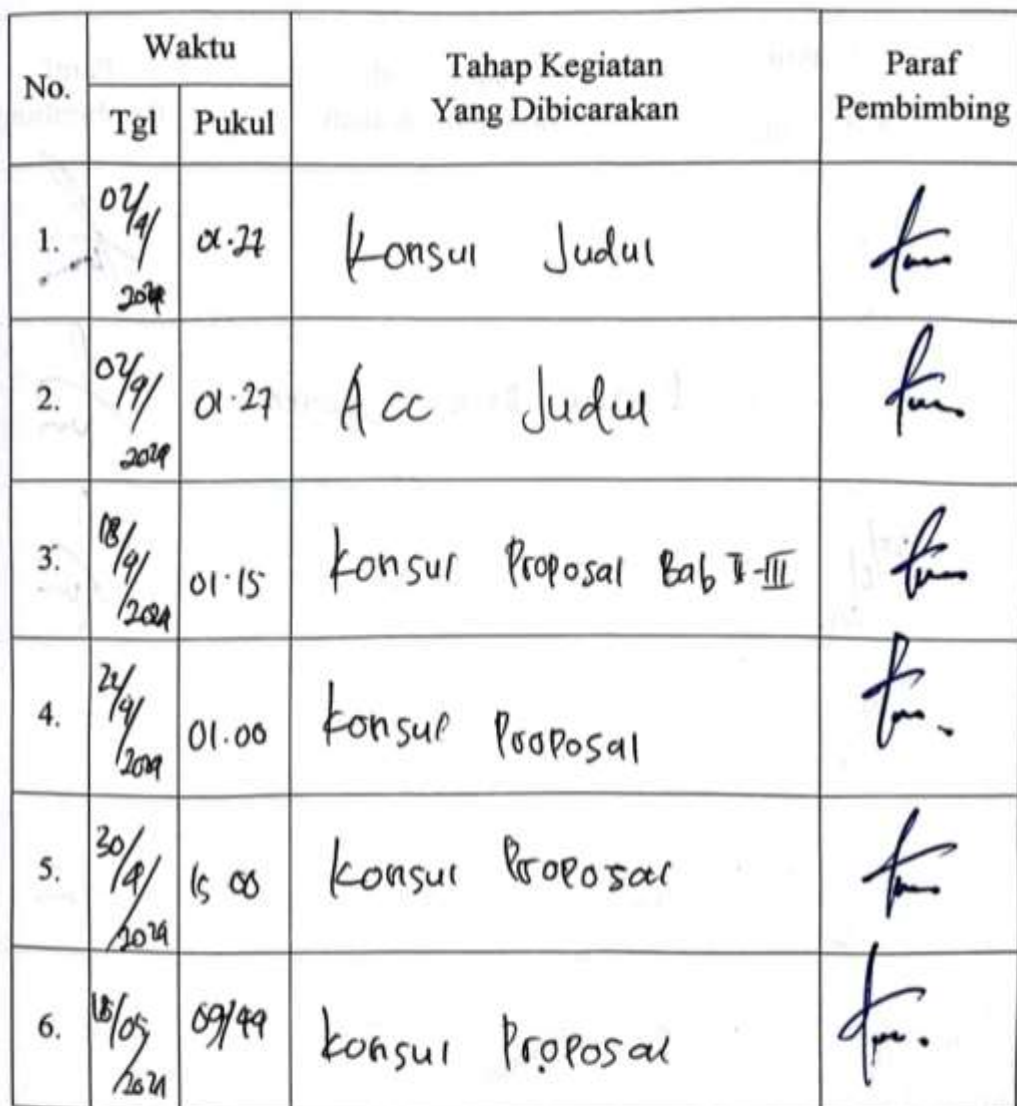 No. Waktu Tahap Kegiatan Yang Dibicarakan Paraf Pembimbing
Tgl Pukul
1. 02/4/2024 01.27 Konsul Judul
2. 02/4/2024 01.27 Acc Judul
3. 18/4/2024 01.15 Konsul Proposal Bab II-III
4. /4/2024 01.00 Konsul Proposal
5. 30/4/2024 15 00 Konsul Proposal
6. /05/2024 09/49 Konsul Proposal